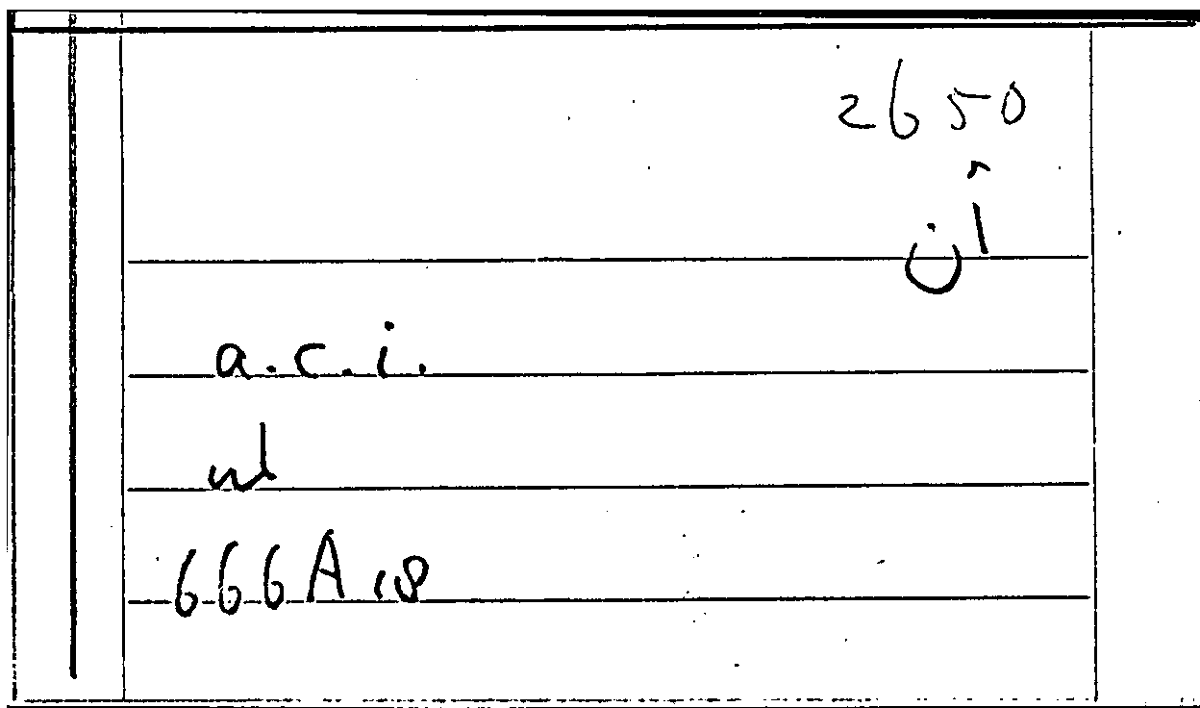 2650
أن
a.c.i.
666A18